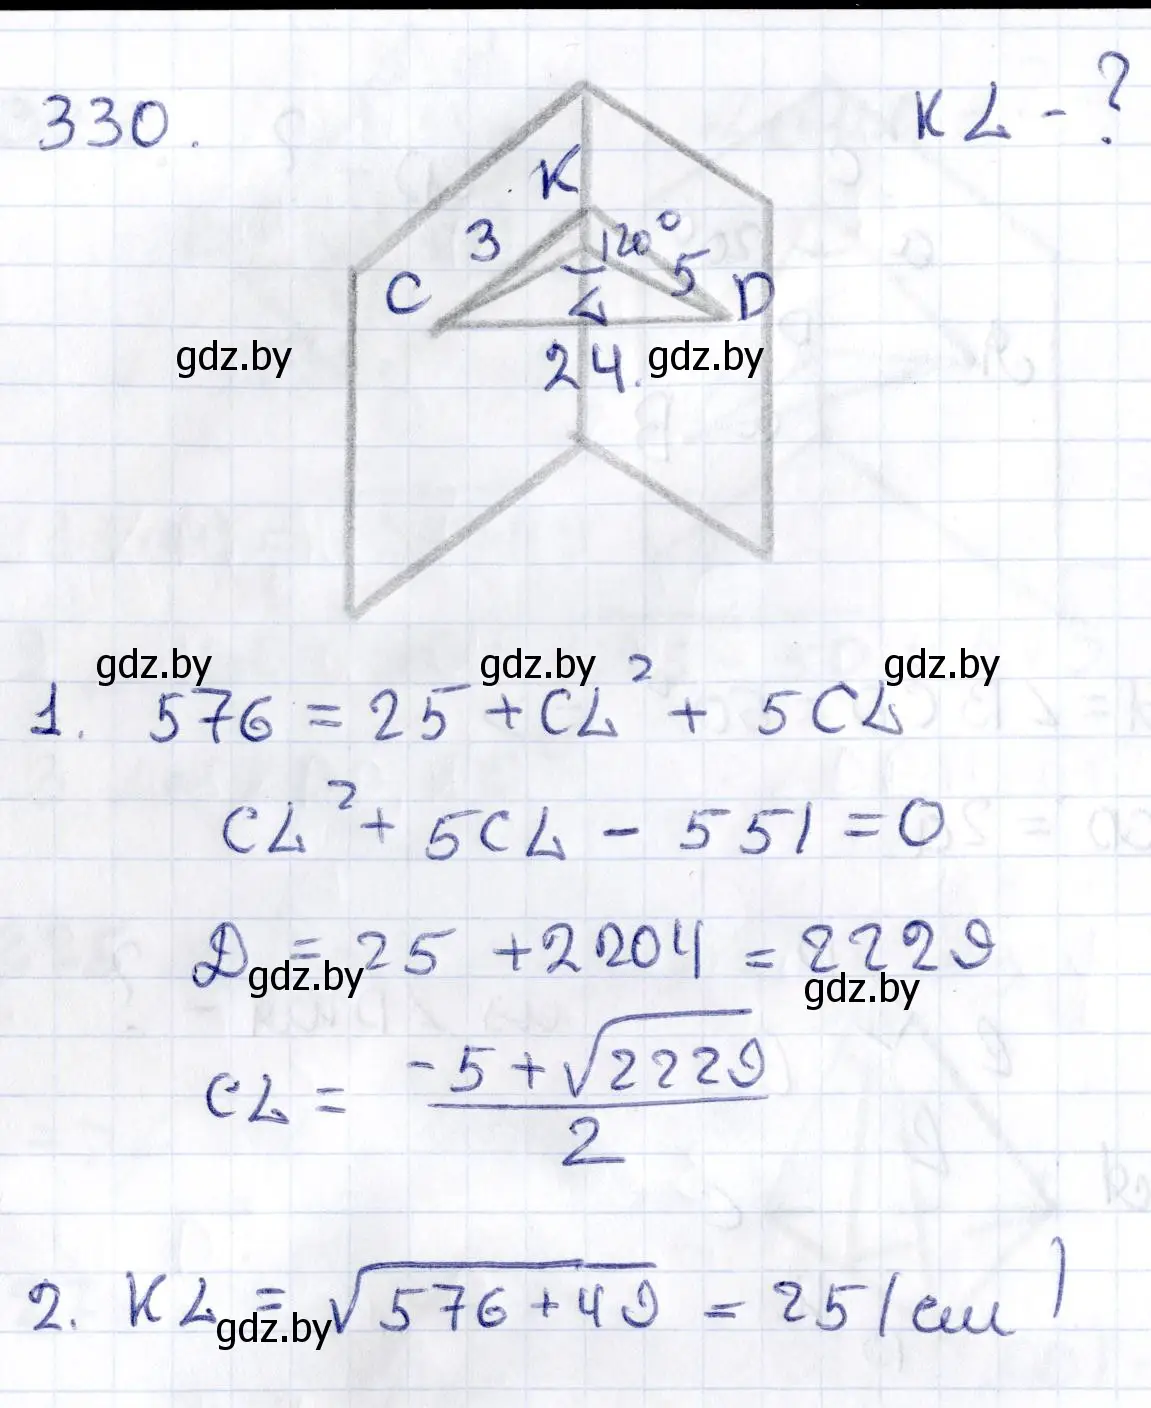 330.
KL - ?
K
3
120°
5
C
L
D
gdz.by
24.
gdz.by
gdz.by
gdz.by
gdz.by
1. 576 = 25 + CL² + 5CL
CL² + 5CL - 551 = 0
D = 25 + 2204 = 2229
gdz.by
gdz.by
CL = \frac{-5 + \sqrt{2229}}{2}
2. KL = \sqrt{576 + 49} = 25 (cm)
gdz.by